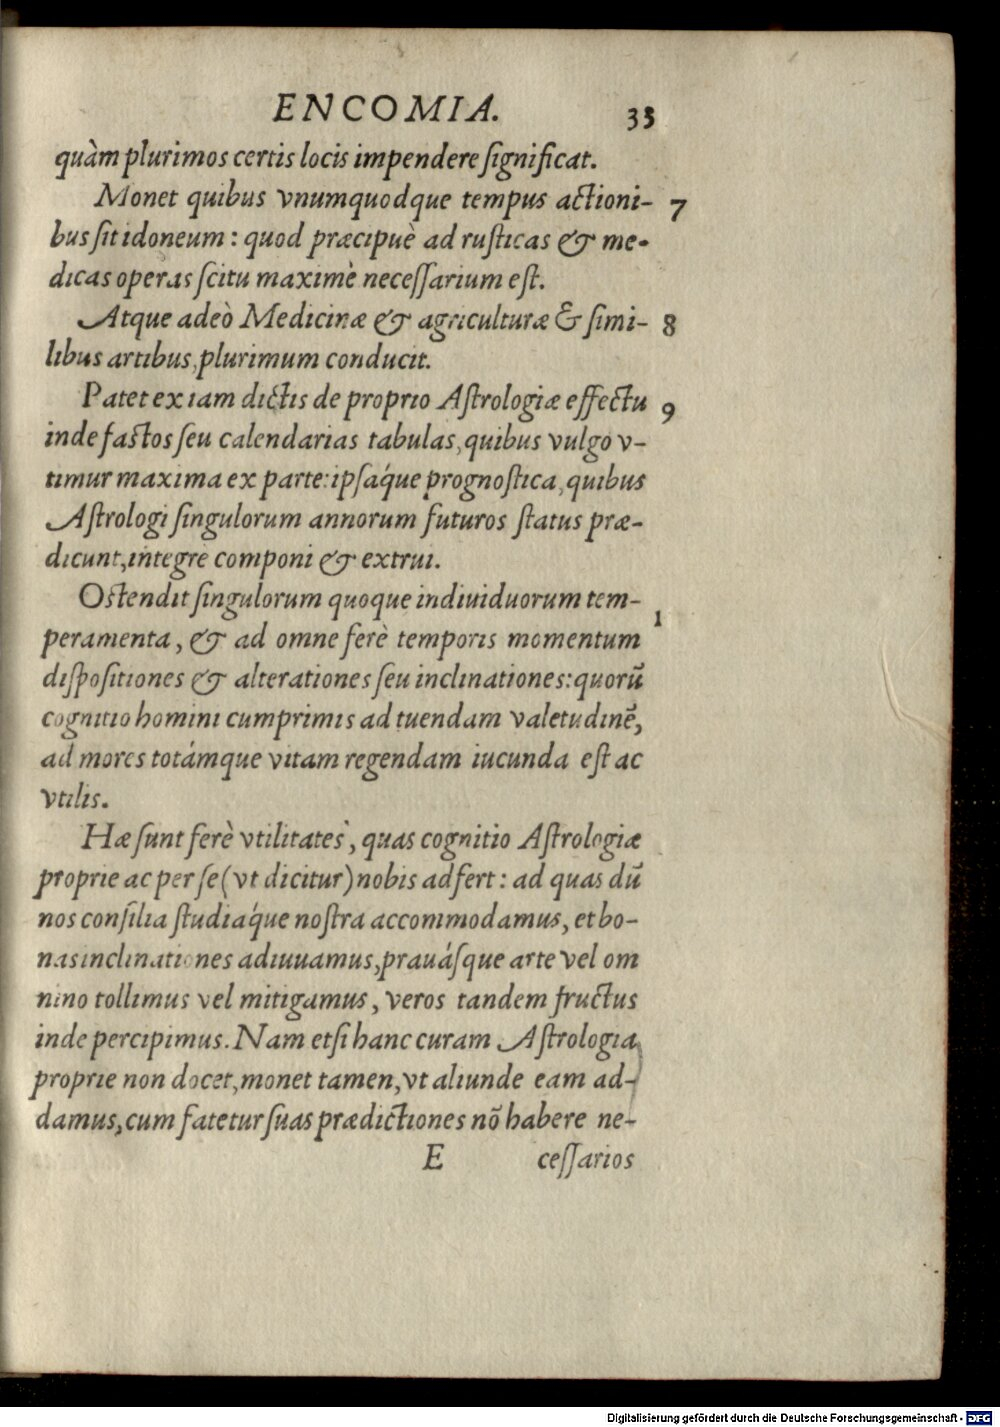 ENCOMIA. 33
quàm plurimos certis locis impendere ſignificat.
Monet quibus vnumquodque tempus actioni- 7
bus ſit idoneum: quod præcipuè ad ruſticas & me-
dicas operas ſcitu maximè neceſſarium eſt.
Atque adeò Medicinæ & agriculturæ & ſimi- 8
libus artibus, plurimum conducit.
Patet ex iam dictis de proprio Aſtrologiæ effectu 9
inde faſtos ſeu calendarias tabulas, quibus vulgo v-
timur maxima ex parte: ipſáque prognoſtica, quibus
Aſtrologi ſingulorum annorum futuros ſtatus præ-
dicunt, integrè componi & extrui.
Oſtendit ſingulorum quoque indiuiduorum tem- 1
peramenta, & ad omne ferè temporis momentum
diſpoſitiones & alterationes ſeu inclinationes: quorũ
cognitio homini cumprimis ad tuendam valetudinẽ,
ad mores totámque vitam regendam iucunda eſt ac
vtilis.
Hæ ſunt ferè vtilitates, quas cognitio Aſtrologiæ
proprie ac per ſe (vt dicitur) nobis adfert: ad quas dũ
nos conſilia ſtudiáque noſtra accommodamus, et bo-
nas inclinationes adiuuamus, prauáſque arte vel om
nino tollimus vel mitigamus, veros tandem fructus
inde percipimus. Nam etſi hanc curam Aſtrologia
proprie non docet, monet tamen, vt aliunde eam ad-
damus, cum fatetur ſuas prædictiones nõ habere ne-
E ceſſarios
Digitalisierung gefördert durch die Deutsche Forschungsgemeinschaft - DFG